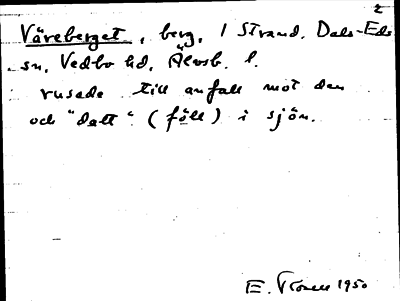 2
Väreberget, berg, 1 Strand, Dals-Eds
sn, Vedbo hd, Älvsb. l.
rusade till anfall mot den
och "datt" (föll) i sjön.
E. 1950